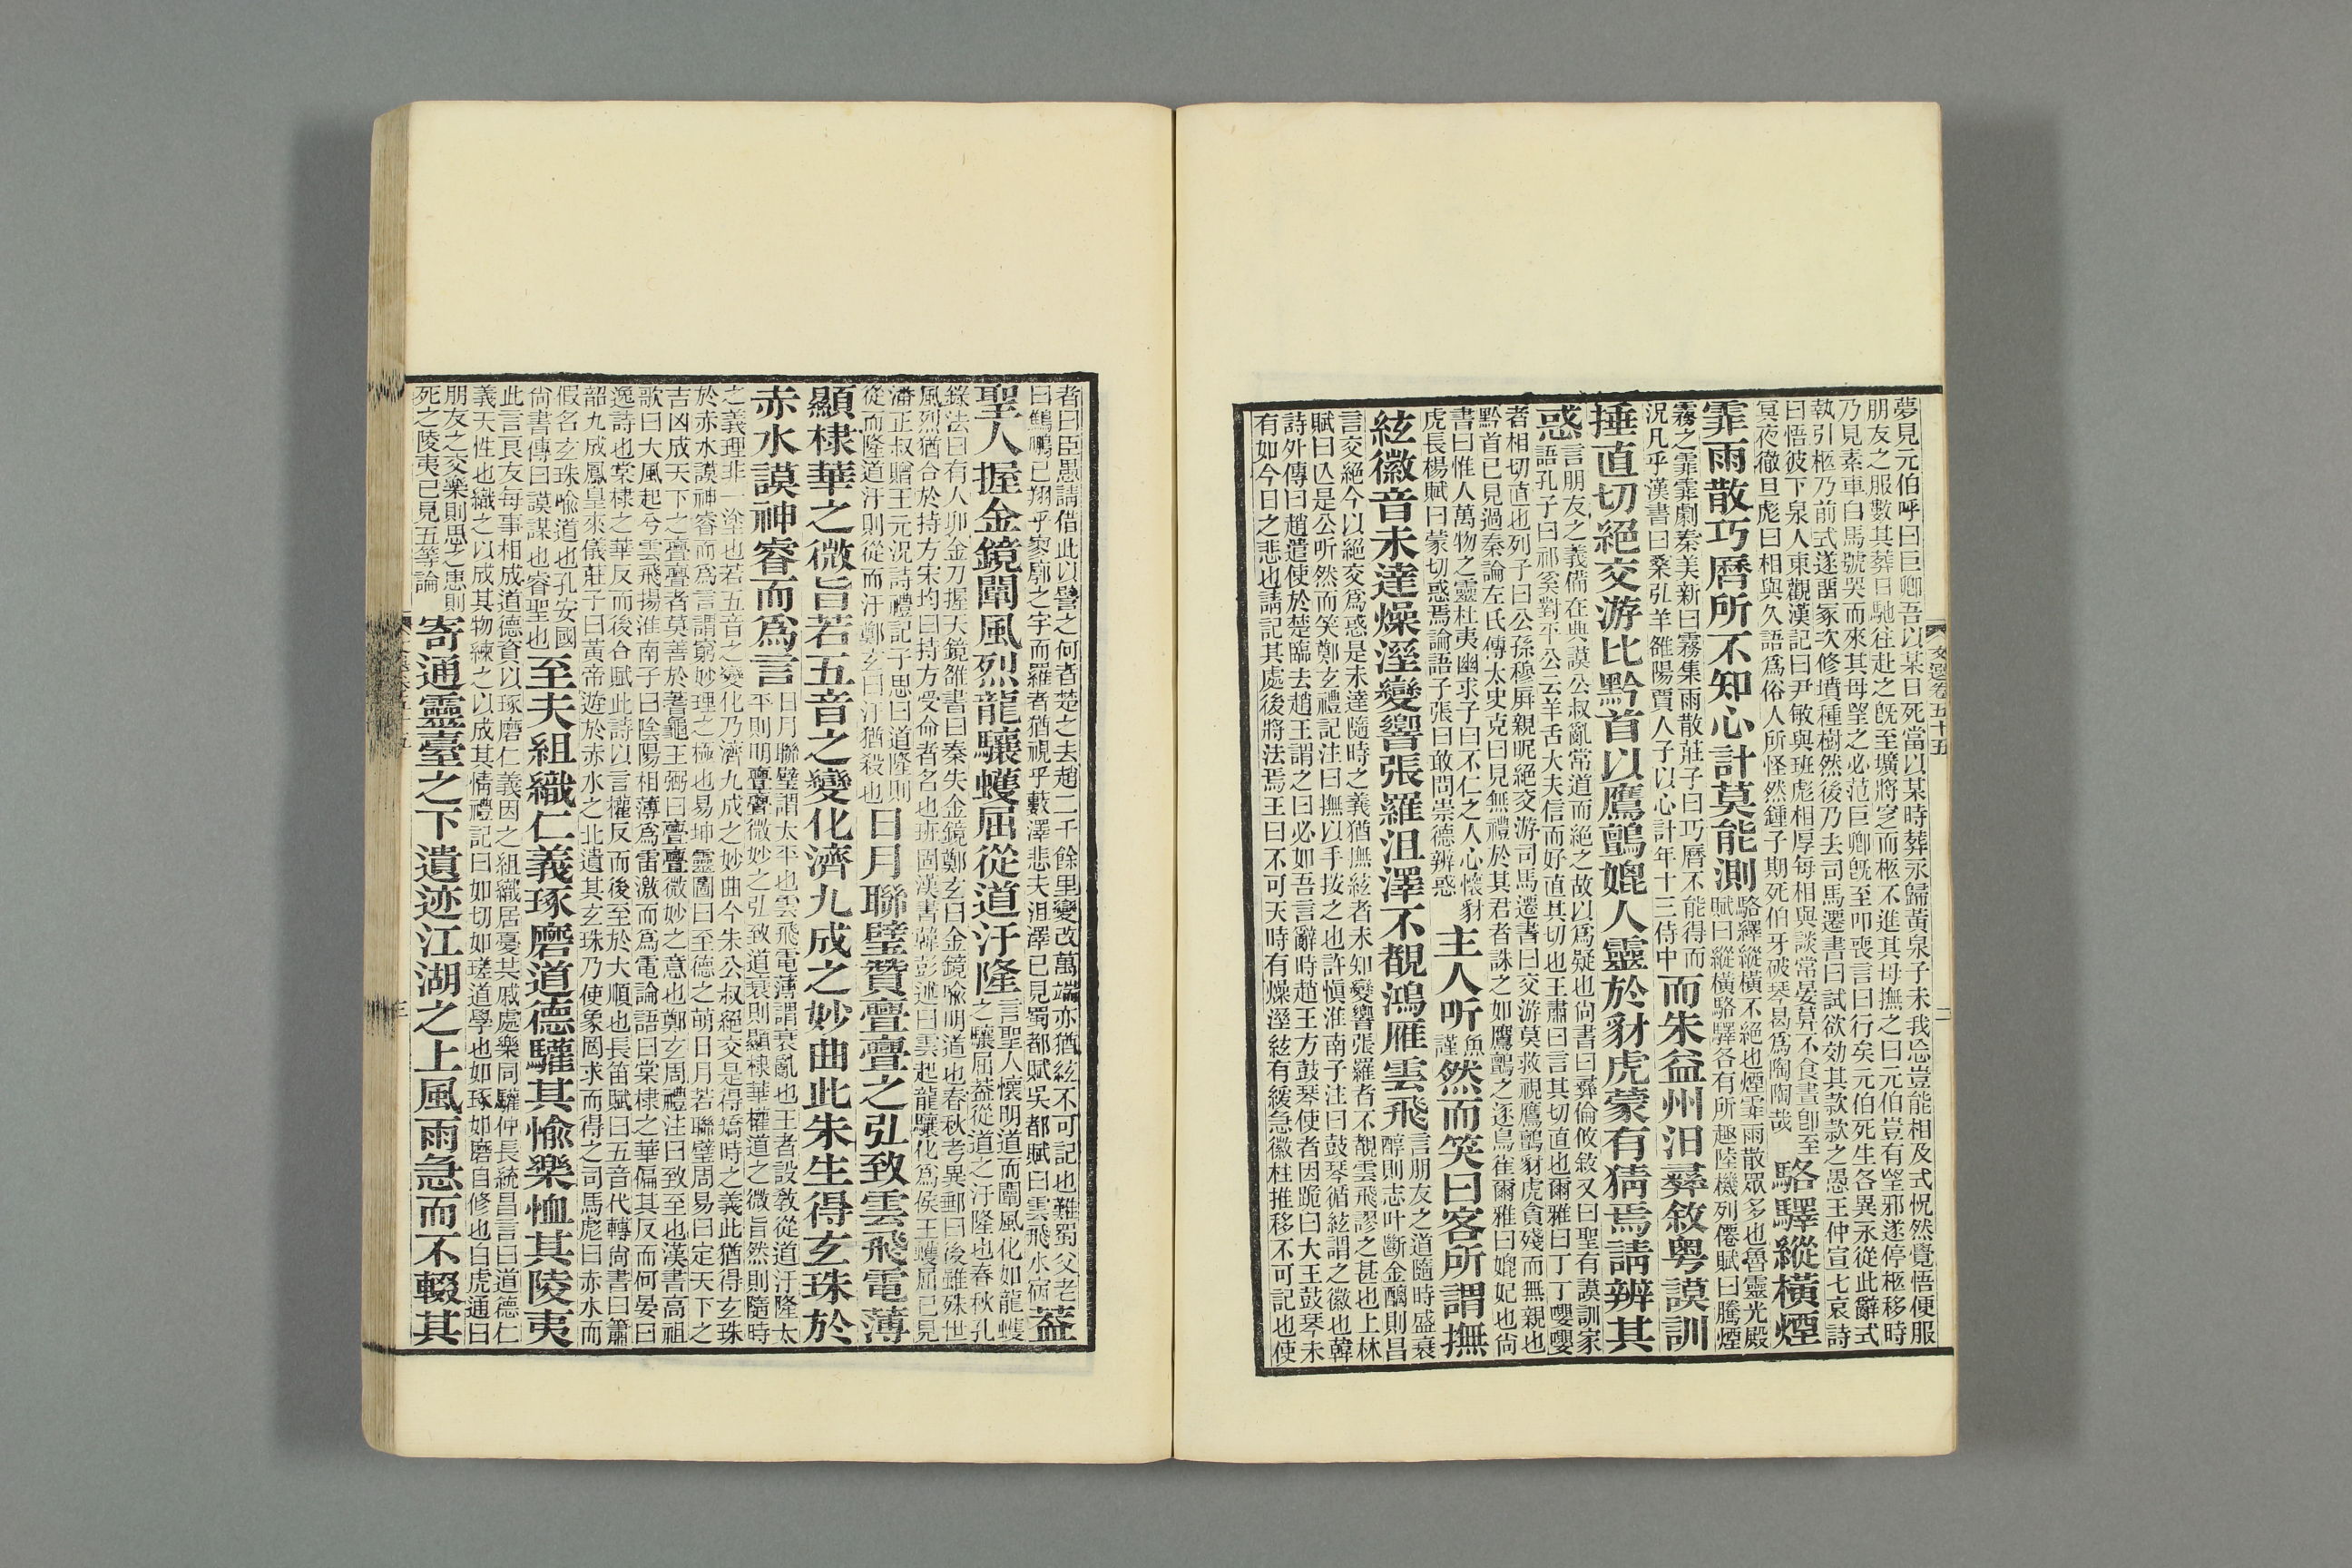 文選卷五十五
二
夢見元伯呼曰巨卿吾以某日死當以某時葬永歸黃泉子未我忘豈能相及式怳然覺悟便服
朋友之服數其葬日馳往赴之旣至壙將窆而柩不進其母撫之曰元伯豈有望邪遂停柩移時
乃見素車白馬號哭而來其母望之必范巨卿旣至叩喪言曰行矣元伯死生各異永從此辭式
執引柩乃前式遂留冢次修墳種樹然後乃去司馬遷書曰試欲効其款款之愚王仲宣七哀詩
曰悟彼下泉人東觀漢記曰尹敏與班彪相厚每相與談常晏暮不食晝卽至
冥夜徹旦彪曰相與久語爲俗人所怪然鍾子期死伯牙破琴曷爲陶陶哉
駱驛縱橫煙
霏雨散巧曆所不知心計莫能測
駱繹縱橫不絕也煙霏雨散眾多也魯靈光殿
賦曰縱橫駱驛各有所趣陸機列僊賦曰騰煙
霧之霏霏劇秦美新曰霧集雨散莊子曰巧曆不能得而
況凡乎漢書曰桑弘羊雒陽賈人子以心計年十三侍中
而朱益州汨彝敘粤謨訓
捶直切絕交游比黔首以鷹鸇媲人靈於豺虎蒙有猜焉請辨其
惑
言朋友之義備在典謨公叔亂常道而絕之故以爲疑也尚書曰彝倫攸敘又曰聖有謨訓家
語孔子曰祁奚對平公云羊舌大夫信而好直其切也王肅曰言其切直也爾雅曰丁丁嚶嚶
者相切直也列子曰公孫穆屏親昵絕交游司馬遷書曰交游莫救視鷹鸇豺虎貪殘而無親也
黔首已見過秦論左氏傳太史克曰見無禮於其君者誅之如鷹鸇之逐鳥雀爾雅曰媲妃也尚
書曰惟人萬物之靈杜夷幽求子曰不仁之人心懷豺
虎長楊賦曰蒙切惑焉論語子張曰敢問崇德辨惑
主人听
魚
謹
然而笑曰客所謂撫
絃徽音未達燥溼變響張羅沮澤不覩鴻雁雲飛
言朋友之道隨時盛衰
醇則志叶斷金醨則昌
言交絕今以絕交爲惑是未達隨時之義猶撫絃者未知變響張羅者不覩雲飛謬之甚也上林
賦曰亾是公听然而笑鄭玄禮記注曰撫以手按之也許愼淮南子注曰鼓琴循絃謂之徽也韓
詩外傳曰趙遣使於楚臨去趙王謂之曰必如吾言辭時趙王方鼓琴使者因跪曰大王鼓琴未
有如今日之悲也請記其處後將法焉王曰不可天時有燥溼絃有緩急徽柱推移不可記也使
者曰臣愚請借此以譬之何者楚之去趙二千餘里變改萬端亦猶絃不可記也難蜀父老
曰鷦鵬已翔乎寥廓之宇而羅者猶視乎藪澤悲夫沮澤已見蜀都賦吳都賦曰雲飛水宿
葢
聖人握金鏡闡風烈龍驤蠖屈從道汙隆
言聖人懷明道而闡風化如龍蠖
之驤屈葢從道之汙隆也春秋孔
錄法曰有人卯金刀握天鏡雒書曰秦失金鏡鄭玄曰金鏡喻明道也春秋考異郵曰後雖殊世
風烈猶合於持方宋均曰持方受命者名也班固漢書韓彭述曰雲起龍驤化爲侯王蠖屈已見
潘正叔贈王元況詩禮記子思曰道隆則
從而隆道汙則從而汙鄭玄曰汙猶殺也
日月聯璧贊亹亹之弘致雲飛電薄
顯棣華之微旨若五音之變化濟九成之妙曲此朱生得玄珠於
赤水謨神睿而爲言
日月聯璧謂太平也雲飛電薄謂衰亂也王者設敎從道汙隆太
平則明亹亹微妙之弘致道衰則顯棣華權道之微旨然則隨時
之義理非一塗也若五音之變化乃濟九成之妙曲今朱公叔絕交是得矯時之義此猶得玄珠
於赤水謨神睿而爲言謂窮妙理之極也易坤靈圖曰至德之萌日月若聯璧周易曰定天下之
吉凶成天下之亹亹者莫善於蓍龜王弼曰亹亹微妙之意也鄭玄周禮注曰致至也漢書高祖
歌曰大風起兮雲飛揚淮南子曰陰陽相薄爲雷激而爲電論語曰棠棣之華偏其反而何晏曰
逸詩也棠棣之華反而後合賦此詩以言權反而後至於大順也長笛賦曰五音代轉尚書曰簫
韶九成鳳皇來儀莊子曰黃帝遊於赤水之北遺其玄珠乃使象罔求而得之司馬彪曰赤水而
假名玄珠喻道也孔安國
尚書傳曰謨謀也睿聖也
至夫組織仁義琢磨道德驩其愉樂恤其陵夷
此言良友每事相成道德資以琢磨仁義因之組織居憂共戚處樂同驩仲長統昌言曰道德仁
義天性也織之以成其物練之以成其情禮記曰如切如瑳道學也如琢如磨自修也白虎通曰
朋友之交樂則思之患則
死之陵夷已見五等論
寄通靈臺之下遺迹江湖之上風雨急而不輟其
三